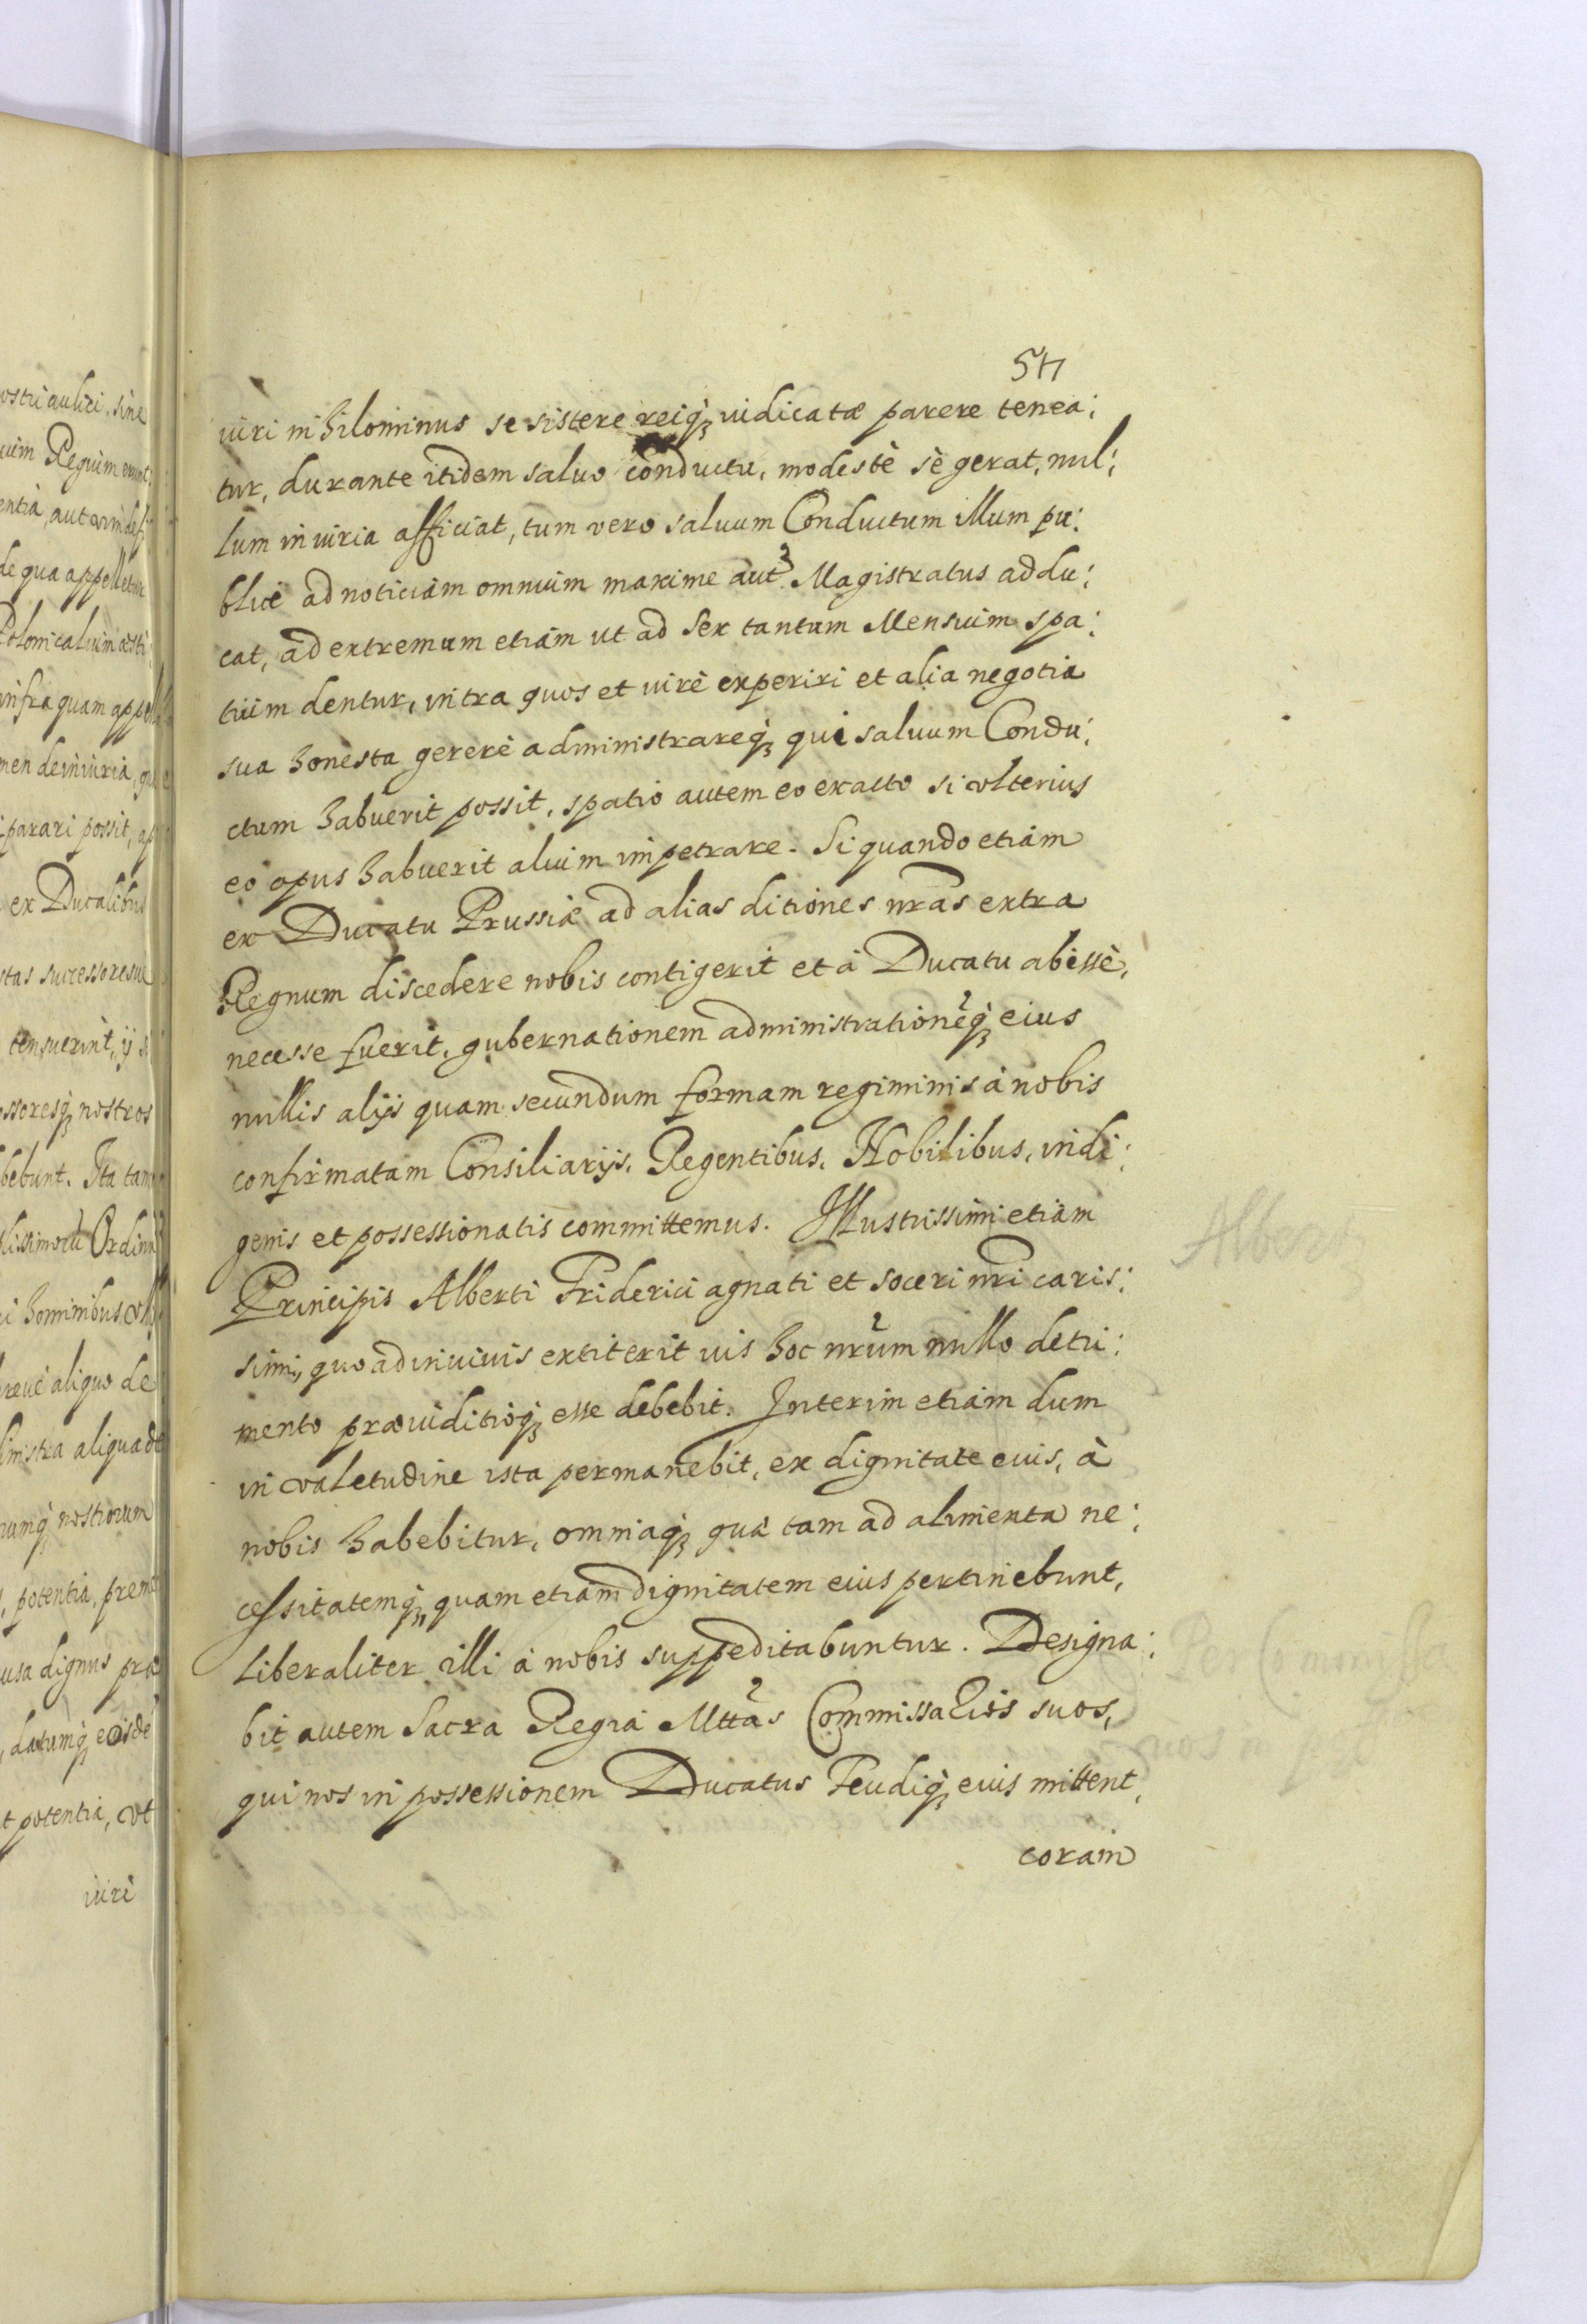 54
iuri nihilominus se sistere reiq́ʒ iudicatæ parere tenea:
tur, durante itidem saluo conductu, modestè sè gerat, nul:
lum iniuria afficiat, tum vero saluum Conductum illum pu:
blicè ad noticiam omnium maxime aut Magistratus addu:
cat, ad extremum etiam ut ad sex tantum Mensium spa:
tium dentur, intra quos et iurè experiri et alia negotia
sua honesta gererè administrareq́ʒ qui saluum Condu:
ctum habuerit possit, spatio autem eo exacto si vlterius
eo opus habuerit alium impetrare. Si quando etiam
ex Ducatu Prussiæ ad alias ditiones nr̃as extra
Regnum discedere nobis contigerit et à Ducatu abessè,
necesse fuerit, gubernationem administrationẽq́ʒ eius
nullis alijs quam secundum formam regiminis à nobis
confirmatam Consiliarijs, Regentibus, Nobilibus, indi:
genis et possessionatis committemus. Illustrissimi etiam
Principis Alberti Friderici agnati et soceri nr̃i caris:
simi, quoad in viuis extiterit ius hoc nr̃um nullo detri:
mento præiuditioq́ʒ esse debebit. Interim etiam dum
in valetudine ista permanebit, ex dignitate eius, à
nobis habebitur, omniaq́ʒ quæ tam ad alimenta ne:
cessitatemq́ʒ, quam etiam dignitatem eius pertinebunt,
liberaliter illi à nobis suppeditabuntur. Designa:
bit autem Sacra Regia Mttãs Commissarios suos,
qui nos in possessionem Ducatus Feudiq́ʒ eius mittent,
coram
Albert
ostri aulici, sine
entia, aut
de qua appelletur
infra quam
men de iniuria,
parari possit,
ex Ducalibus
tas successores
ssoresq́ʒ nostros
bebunt. Ita tam
hominibus
aliquo de
nistra aliqua
numq́ʒ nostrorum
potentia,
usa dignus
t potentia, vt
iuri